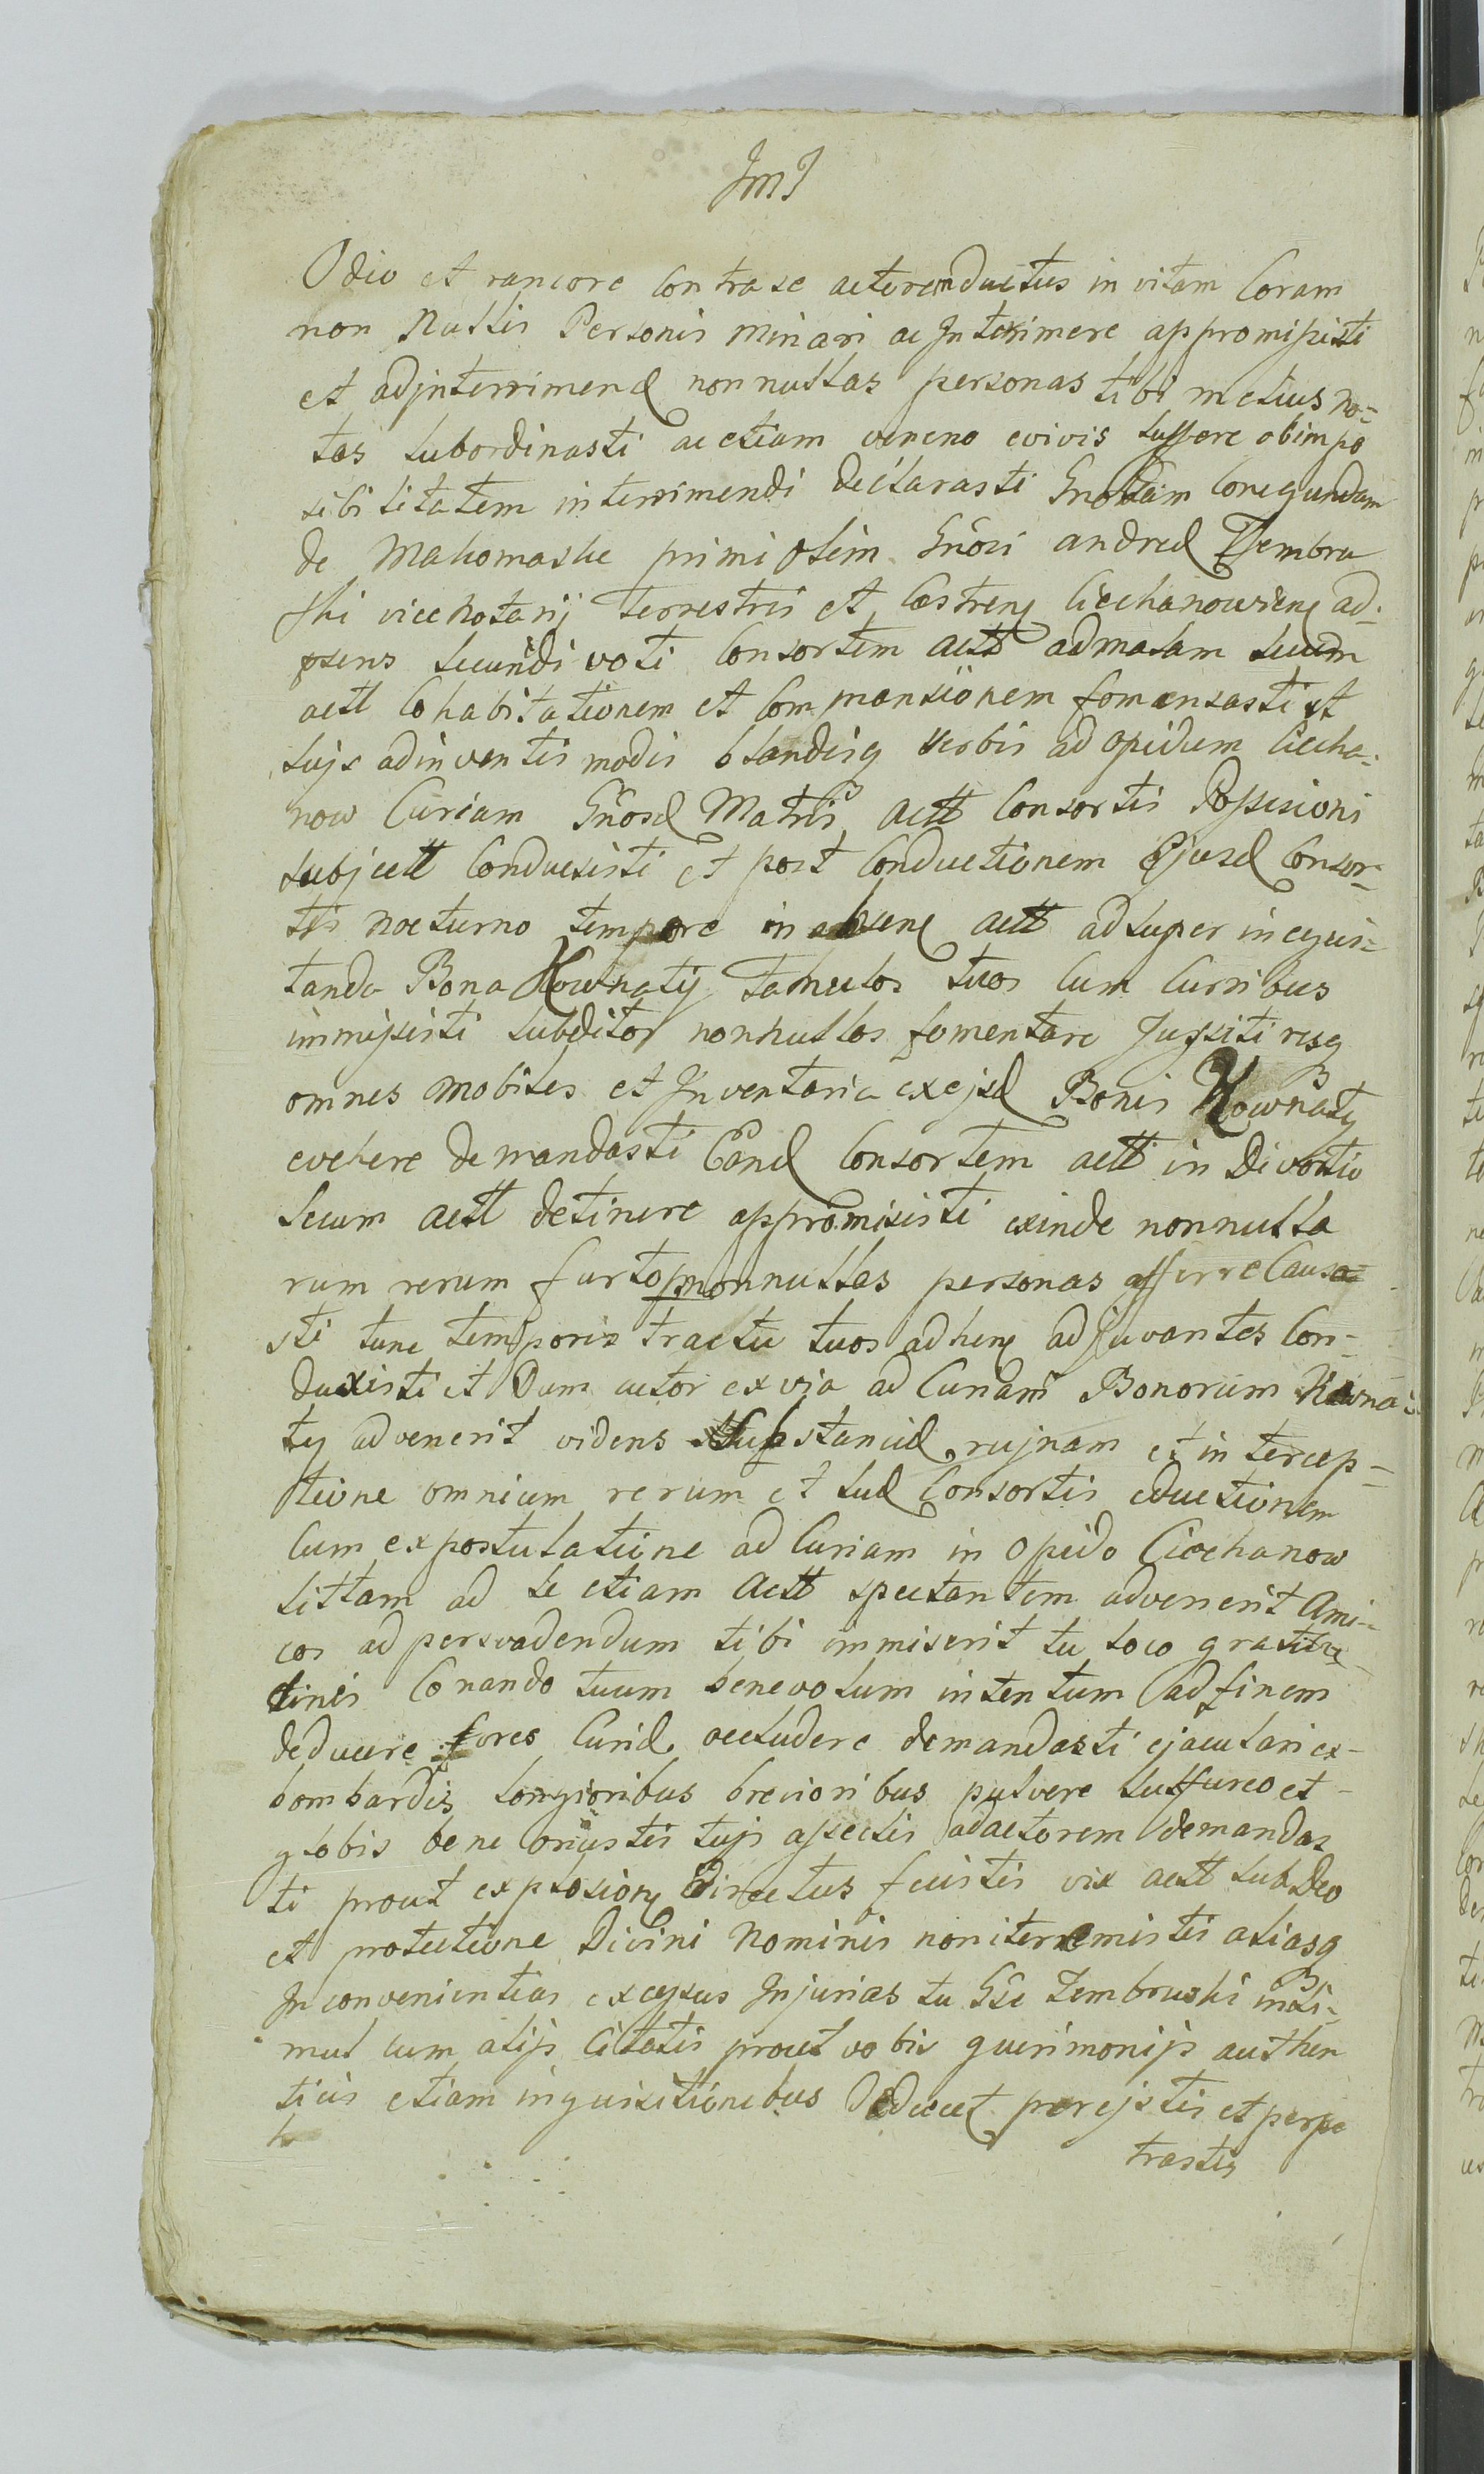 JmJ
Odio et rancore Contra se actorem ductus in vitam Coram
non Nullis Personis minari ac Interimere appromisisti
et adjnterrimend nonnullas personas tibi melius no=
tas subordinasti ac etiam veneno evivis tollere obimpo
sibilitatem interrimendi declarasti Gnosam Conegundam
de Makomaskie primi olim Gnosi andreæ Zembru
ski vicenotarij Terrestris et Castrens Ciechanoviens ad=
psens secundi voti Consortem actt admalam secum
actt Cohabitationem et Commansionem fomentasti et
tujs adinventis modis blandisq verbis ad opidum Ciecha=
now Curiam Gnosæ Matris actt Consortis Possesioni
subjectt Conduxisti et post Conductionem Ejusd Consor=
tis nocturno tempore in absens actt ad super inequi=
tanda Bona Kownaty famulos tuos Cum Curribus
immisisti subditos nonnullos fomentare Jussiti resq
omnes mobiles et Inventaria ex ejsd Bonis Kownaty
evehere demandasti Eand Consortem actt in Divortio
secum actt detinere appromisisti exinde nonnulla
rum rerum furto nonnullas personas afferre Causa=
sti tunc temporis tractu tuos adhens adjuvantes Con=
duxisti et Dum actor exvia ad Curiam Bonorum Kowna=
ty advenerit videns Substanciæ rujnam et intercep=
tione omnium rerum et suæ Consortis eductionem
Cum expostulatione ad Curiam in Opido Ciechanow
sittam ad se etiam Actt spectantem advenerit Ami=
cos ad persvadendum tibi immiserit tu loco gratitu=
dinis Conando tuum benevolum intentum ad finem
deducere fores Curiæ occludere demandasti ejaculari ex=
bombardis longioribus brevioribus pulvere sulfureo et=
globis bene onustis tujs asseclis ad actorem demandas
ti prout explosione Directus fuistis vix actt sub Deo
et protectione Divini Nominis non iterremistis aliasq
Inconvenientias excessus Injurias tu Gse Zembruski insi=
mul cum alijs Citatis prout vobis querimonijs authen
ticis etiam inquisitionibus Deducet peregistis et perpe
trastis